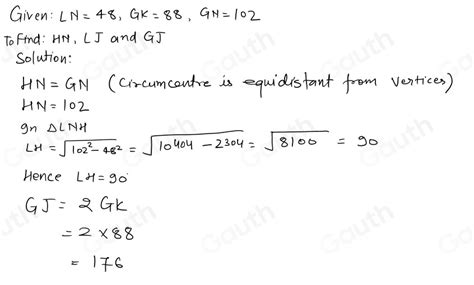 Given: LN = 48, GK = 88, GN = 102
To Find: HN, LJ and GJ
Solution:
HN = GN (Circumcentre is equidistant from vertices)
HN = 102
In ΔLNH
LH = √102²-48² = √10404 - 2304 = √8100 = 90
Hence LH = 90
GJ = 2 GK
= 2 × 88
= 176
Gauth
Gauth
Gauth
Gauth